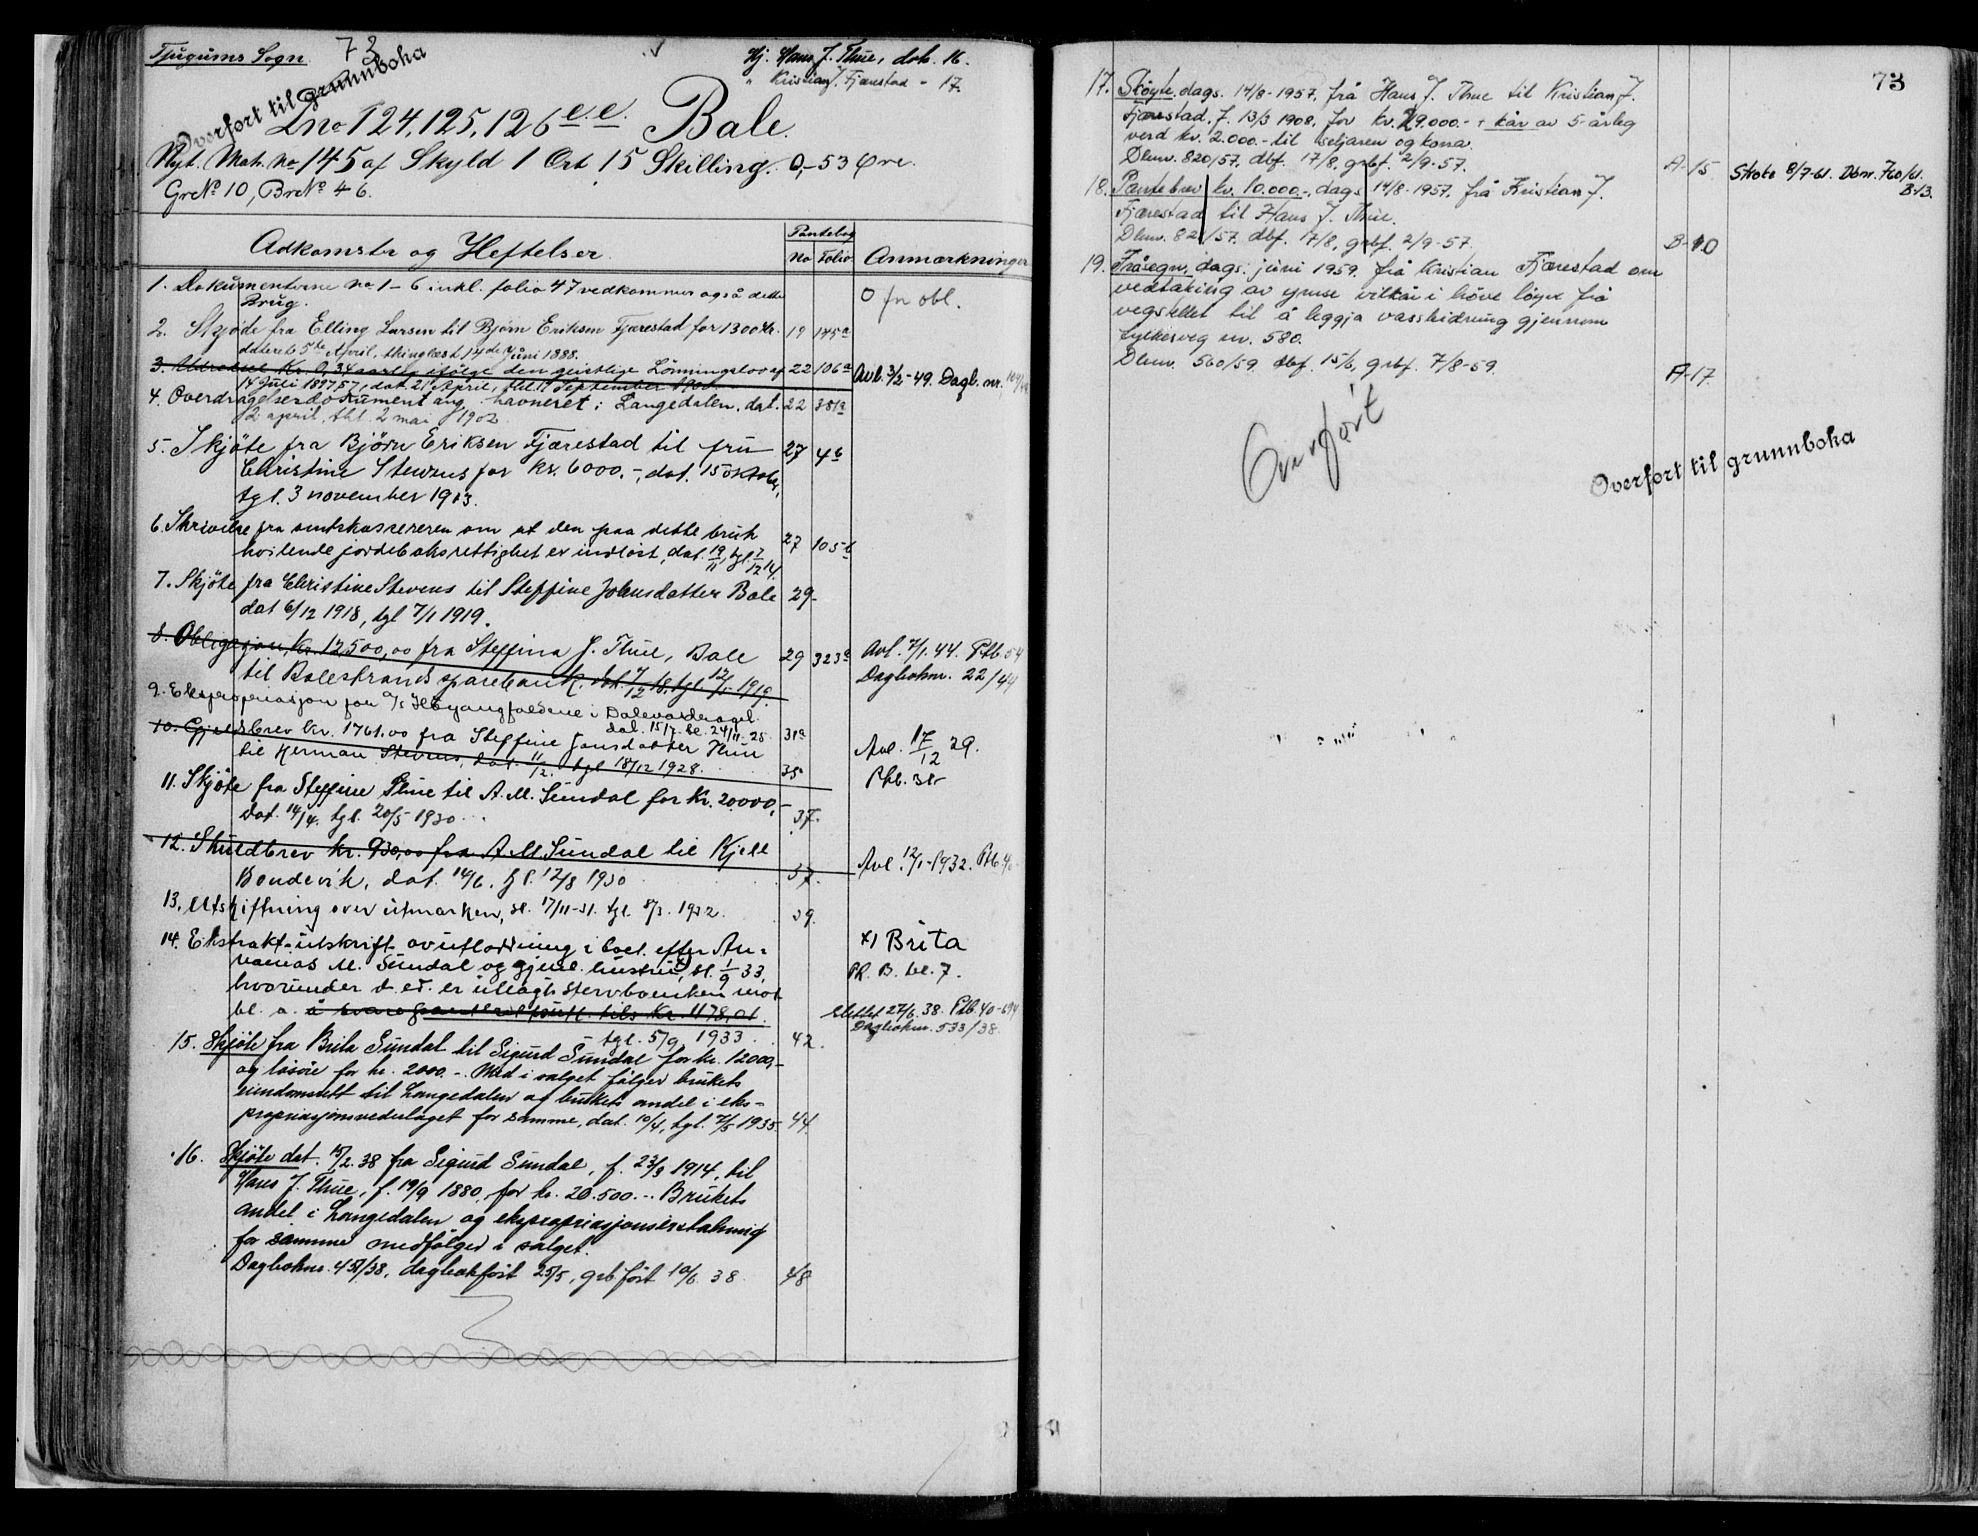 Tjugums Sogn. 73
Overført til grunnboka
Hj. Hans J. Thue, dok. 16.
" Kristian J. Fjærestad - 17.
Lno 124, 125, 126 e.e. Bale.
Nyt. Matr. No 145 af Skyld 1 Ort 15 Skilling. 0,-53 Øre
Gr No 10, Br No 46.
Adkomster og Heftelser
Pantebog
No Folio
Anmærkninger
1. Dokumenterne No 1-6 inkl. folio 47 vedkommer også dette
Brug.
O fr obl.
2. Skjøde fra Elling Larsen til Bjørn Eriksen Fjærestad for 1300 kr. 19 145a
dateret 5te April, thinglæst 14de Juni 1888.
3. Udredsel Kr. 0,34 aarlig ifølge den geistlige Lønningslov af 22 106a
14 Juli 1897, dat. 21 April, thl. 11 September 1901.
Avl. 3/2-49. Dagb. nr. 104/49
4. Overdragelsesdokument ang. havneret i Langedalen, dat. 22 381a
2 april, thl 2 mai 1902
5. Skjøte fra Bjørn Eriksen Fjærestad til fru 27 4b
Christine Stevens for kr. 6000.-, dat. 15 oktober,
tgl. 3 november 1913.
6. Skrivelse fra amtskassereren om at den paa dette bruk
hvilende jordeboksrettighet er indløst, dat. 19/11, tgl 2/12 14. 27 105b
7. Skjøte fra Christine Stevens til Steffine Johnsdatter Bale 29
dat 6/12 1918, tgl 7/1 1919.
8. Obligasjon Kr. 12,500,00 fra Steffina J. Thue, Bale 29 323a
til Balestrands sparebank. dat. 7/12 18, tgl. 12/5 1919.
Avl. 7/1. 44. Ptb. 54
Dagboknr. 22/44
9. Ekspropriasjon for A/S Høyangfaldene i Dalevasdraget.
dat. 15/7 be. 24/11-25 31a
10. Gjeldsbrev kr. 1761.00 fra Steffine Jonsdatter Thue
til Herman Stevens, dat. 11/12. tgl 18/12 1928. 35
Avl. 17/12 29.
Ptb. 35
11. Skjøte fra Steffine Thue til A. M. Sundal for Kr. 20000,-
dat. 14/4. tgl. 20/5 1930 37.
12. Skuldbrev kr. 930,00 fra A. M. Sundal til Kjell
Bondevik, dat. 14/6. tgl. 12/8 1930 37.
Avl. 12/1-1932. Ptb. 40
13. Utskiftning over utmarken, sl. 17/11-31. tgl. 8/3. 1932. 39.
14. Ekstrakt-utskrift av utlodning i boet efter An-
vanias M. Sundal og gjenl. hustru x), sl. 1/9 33,
hvorunder d. ed. er utlagt stervboenken mot
bl. a. å svare
tgl. 5/9 1933 42.
x) Brita
PR. B. be. 7.
Slettet 27/6. 38. Ptb. 40-694
Dagboknr. 533/38.
15. Skjøte fra Brita Sundal til Sigurd Sundal for kr. 12000,-
og løsøre for kr. 2000.-. Med i salget følger brukets
eiendomsrett til Langedalen og brukets andel i eks-
propriasjonsvederlaget for samme, dat. 10/4, tgl. 7/5 1935. 44.
16. Skjøte dat. 15/2. 38 fra Sigurd Sundal, f. 23/3 1914, til
Hans J. Thue, f. 19/9 1880, for kr. 20.500.-. Brukets
andel i Langedalen og ekspropriasjonserstatning
for samme medfølger i salget.
Dagboknr. 451/38, dagbokført 25/5, grb. ført 10/6 38. 48
73
17. Skøyte, dags. 14/8-1957, frå Hans J. Thue til Kristian J.
Fjærestad, f. 13/3 1908, for kr. 29.000.- + kår av 5-årleg
verd kr. 2.000.- til seljaren og kona.
Dbnr. 820/57. dbf. 17/8, grbf. 2/9-57. A-15 Sløkt 8/7-61. Dbnr. 760/61.
B13.
18. Pantebrev kr. 10.000.-, dags 14/8-1957. frå Kristian J.
Fjærestad til Hans J. Thue.
Dbnr. 821/57. dbf. 17/8, grbf. 2/9-57. B-10
19. Fråsegn, dags. juni 1959. frå Kristian Fjærestad om
vedtaking av ymse vilkår i høve løyve frå
vegstellet til å leggja vassleidning gjennom
fylkesveg nr. 580.
Dbnr. 560/59. dbf. 15/6, grbf. 7/8-59. A-17.
Overført
Overført til grunnboka